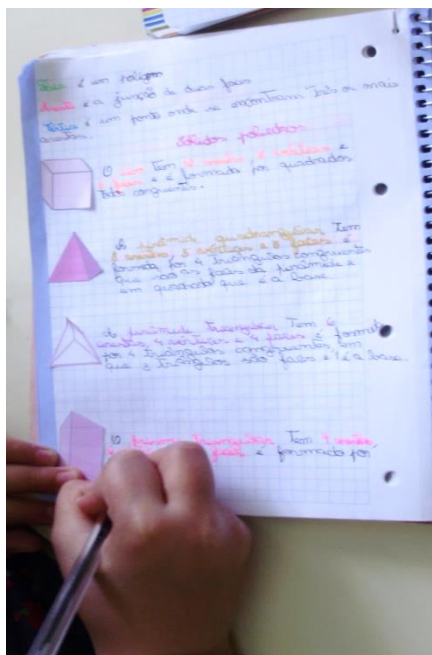 Face é um polígono
Aresta é a junção de duas faces
Vértice é um ponto onde se encontram três ou mais
arestas.
Sólidos poliedros
O cubo tem 12 arestas, 8 vértices e
6 faces e é formado por quadrados
todos congruentes.
A pirâmide quadrangular tem
8 arestas, 5 vértices e 5 faces é
formada por 4 triângulos congruentes
que são as faces da pirâmide e
um quadrado que é a base.
A pirâmide triangular tem 6
arestas, 4 vértices e 4 faces é formada
por 4 triângulos congruentes em
que 3 triângulos são faces e 1 é a base.
O prisma triangular tem 9 arestas,
faces é formado por